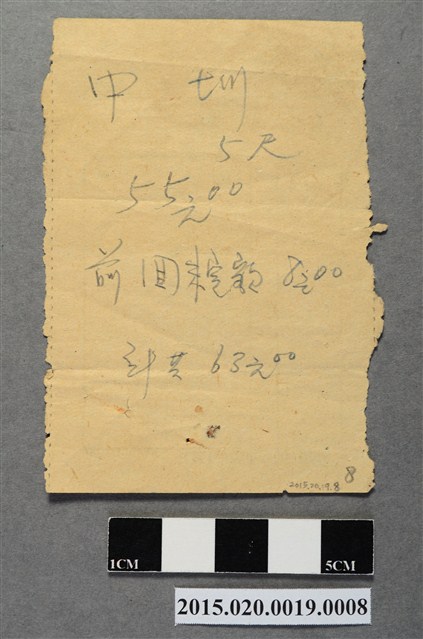 中圳
5天
55元00
前回糧額 8元00
計共 63元00
8
2015.020.0019.0008
1CM
5CM